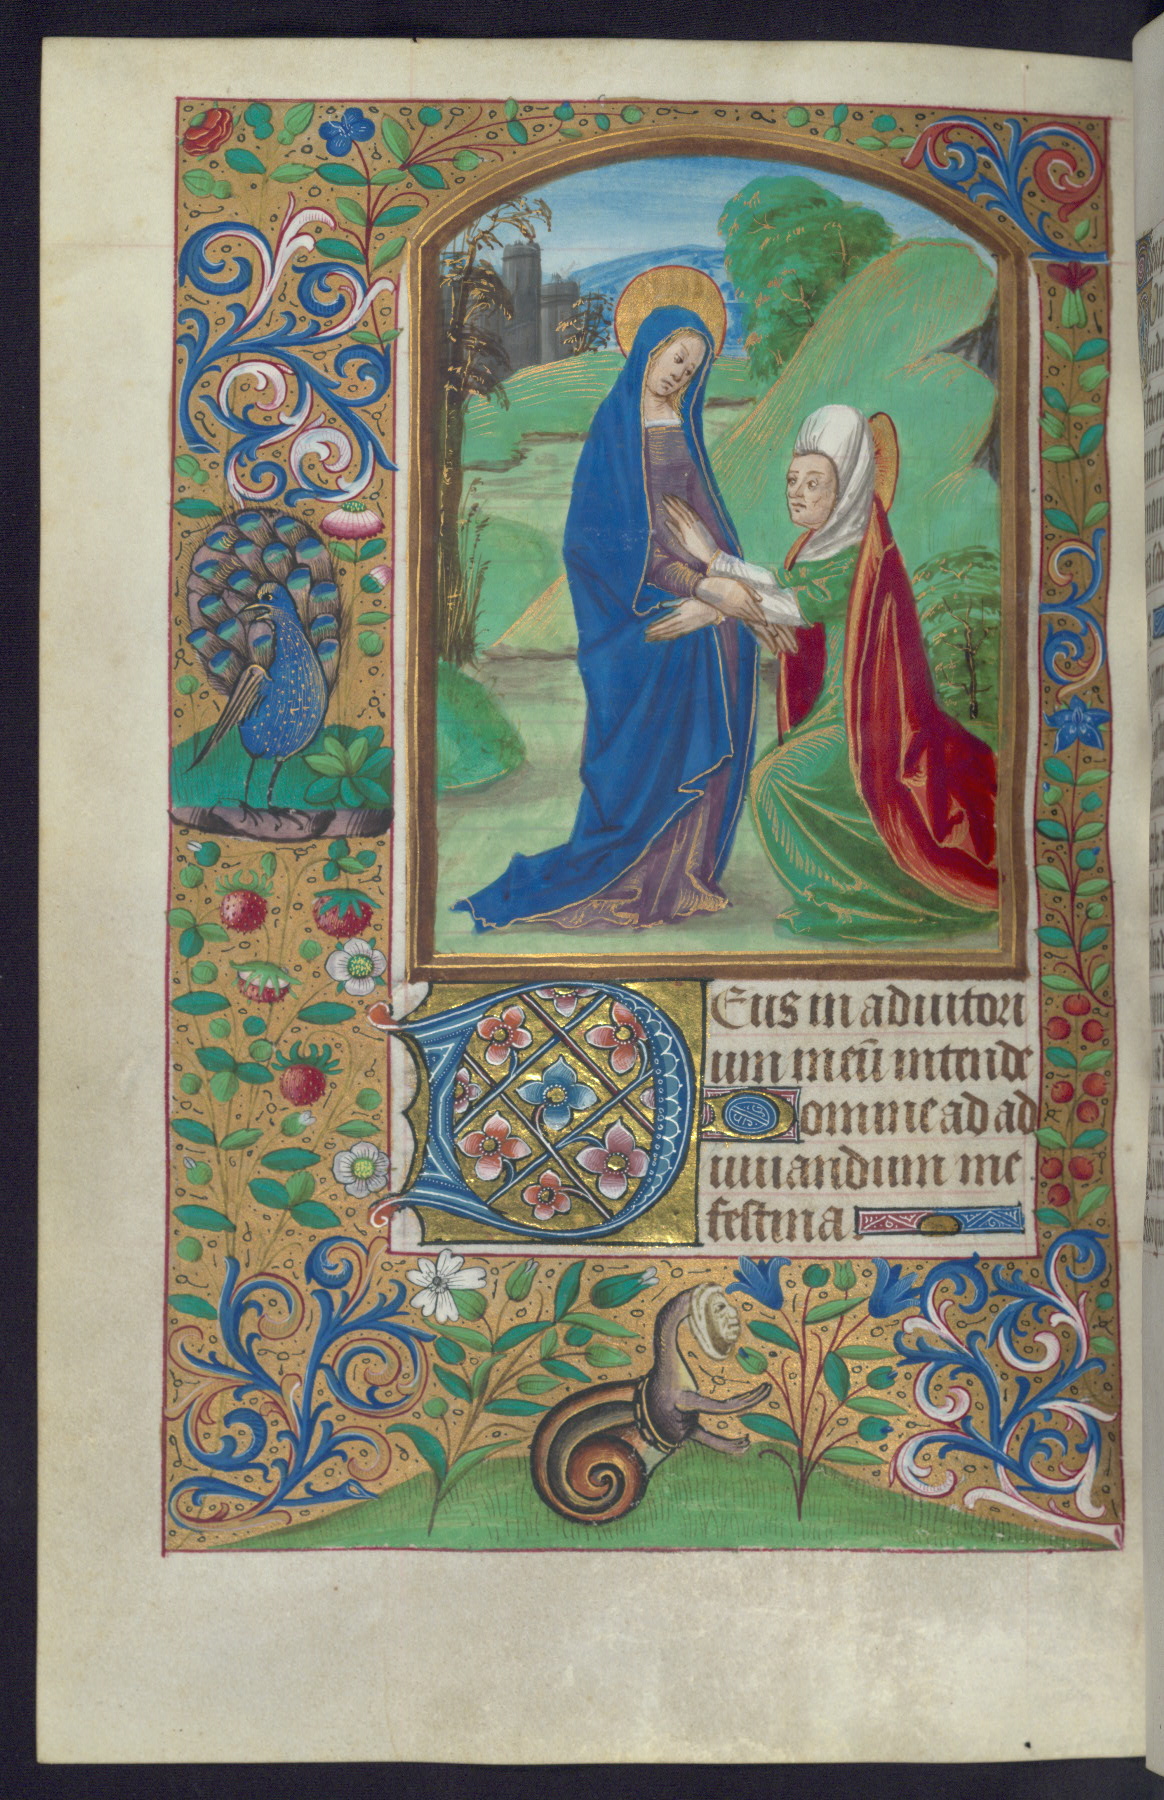 DEus in adiutori
um meū intende
Domine ad ad
iuuandum me
festina.